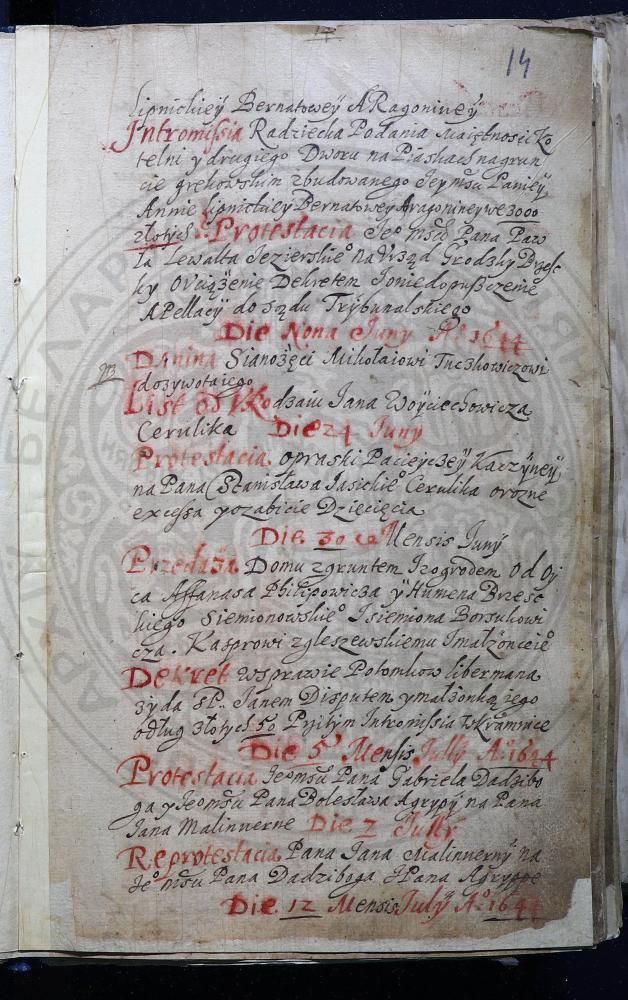 14
Lipnickiey Bernatowey ARagoniney
Intromissia Radziecka Podania Maiętnosci Ko
telni y drugiego Dworu na Piaskach nagrun
cie grekowskim zbudowanego Jey mści Paniey
Annie Lipnickiey Bernatowey Aragoniney we 3000
złotych Protestacia Jeo mści Pana Paw
ła Lewalta Jezierskieo na Vrząd Grodzky Brzesc
ky Oruciązenie Dekretem Joniedopuszczenie
APellacÿ do Sądu Trybunalskiego
Die Nona Juny Ao 1644
Danina Sianożęci Mikołaiowi Tuczkowiczowi
NB
dozywotniego
List od V Rodzaiu Jana Woyciechowicza
Cerulika Die 24 Juny
Protestacia opraski Pacieyczey Kaczyney
na Pana Stanisława Jasickieo Cerulika orozne
excessa yozabicie Dziecięcia
Die 30 Mensis Juny
Przedaża Domu zgruntem Izogrodem od Oy
ca Affanasa Philipowicza y Humena Brzesc
kiego Siemionowskieo Isiemiona Borsukowi
cza. Kasprowi zgleszewskiemu Imałżonceieo
Dekret wsprawie Potomkow libermana
żyda sP. Janem Disputem ymałżonką iego
odług złotych 50 Przitym Intromissia wKramnice
Die 5 Mensis Jully Ao 1644
Protestacia Jeomści Pana Gabriela Dadzibo
ga y Jeomści Pana Bolesława Agrypÿ na Pana
Jana Malinuerne Die 7 Jully
Reprotestacia Pana Jana Malinuernÿ na
Jeo mści Pana Dadziboga JPana Agryppe
Die 12 Mensis July Ao 1644